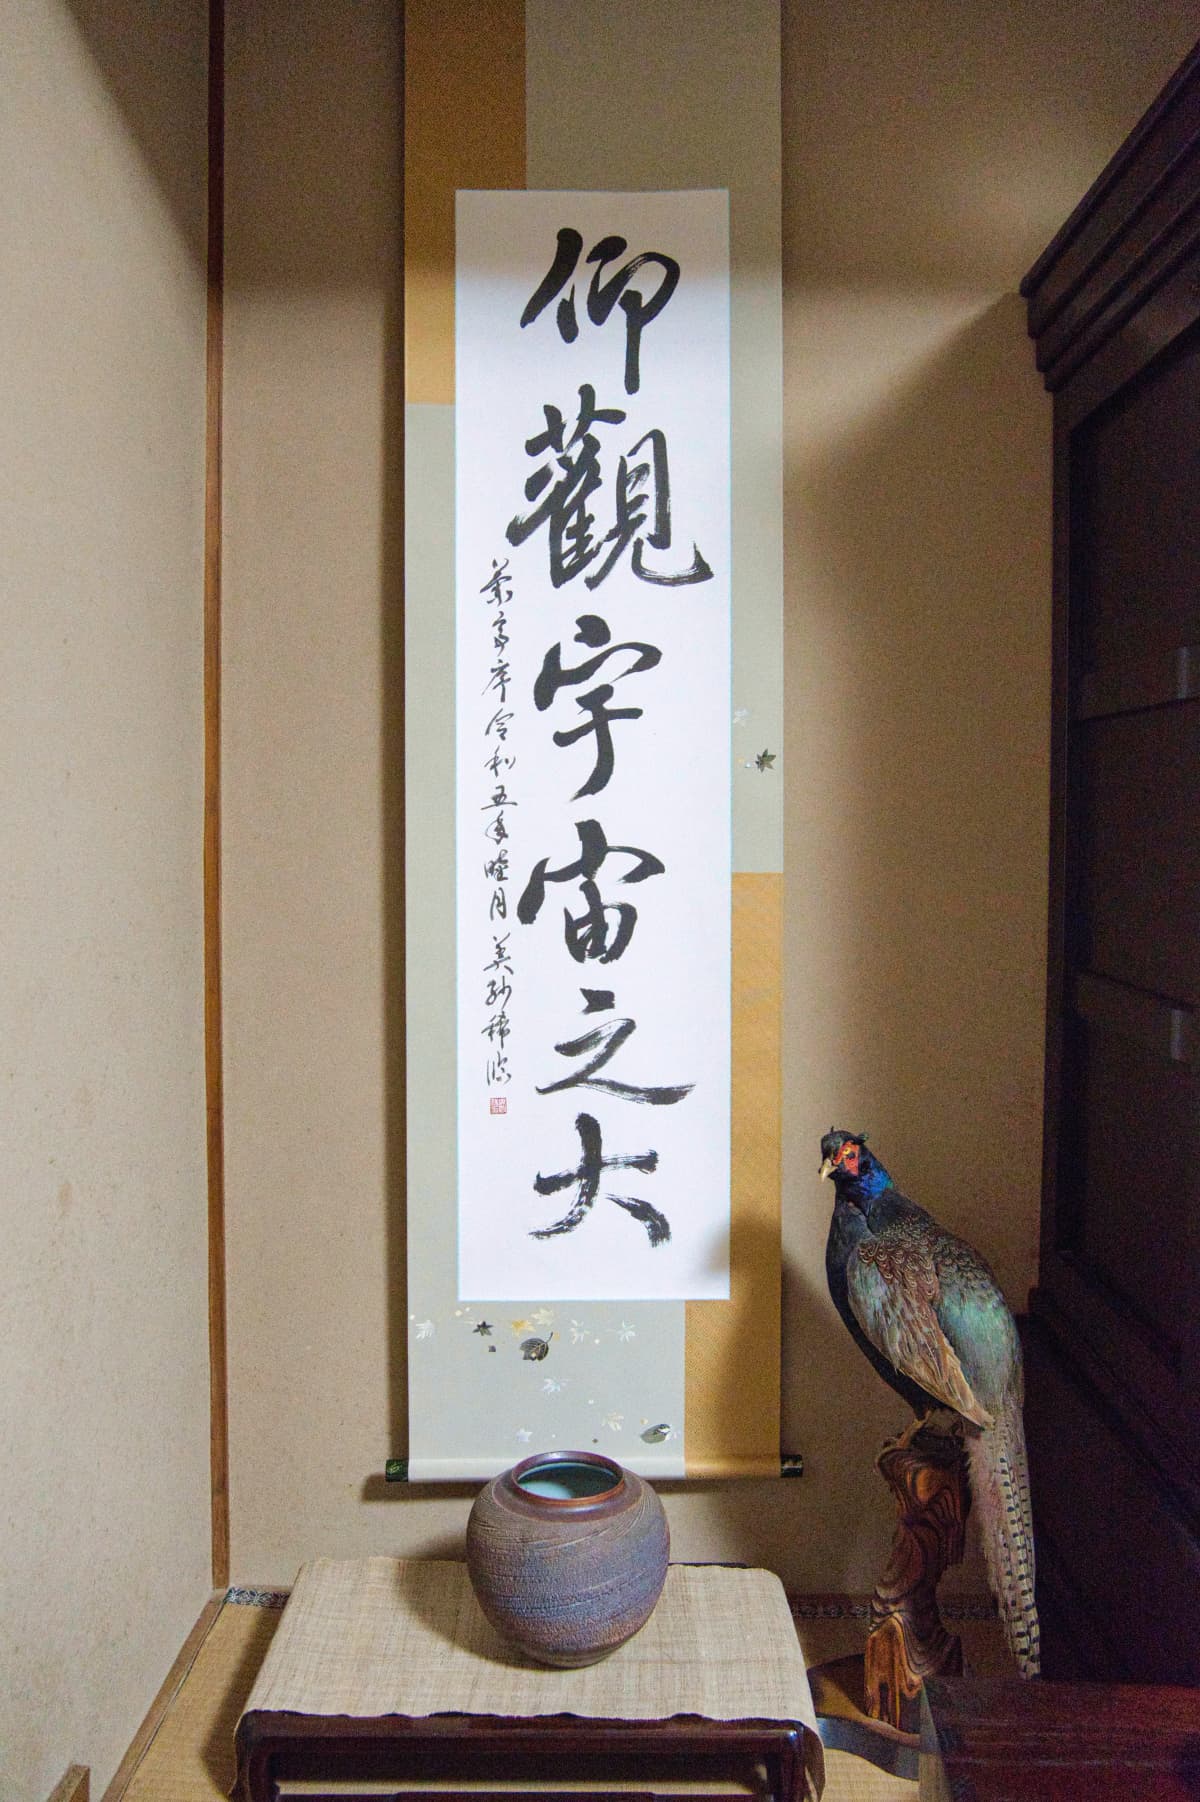 仰觀宇宙之大
蘭亭序令和五年睦月 美紗稀臨